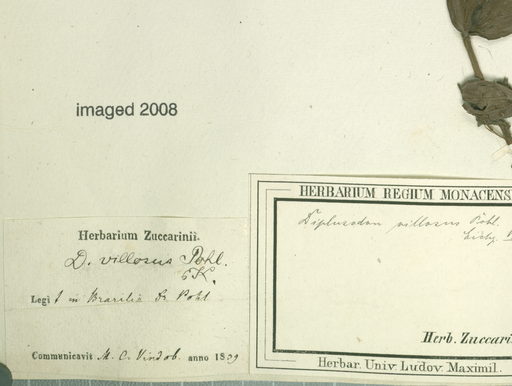 imaged 2008
Herbarium Zuccarinii.
D. villosus Pohl.
Legit in Brasilia Dr Pohl
Communicavit M. C. Vindob. anno 1839
HERBARIUM REGIUM MONACENS
Diplusodon villosus Pohl.
Herb. Zuccari
Herbar. Univ. Ludov. Maximil.